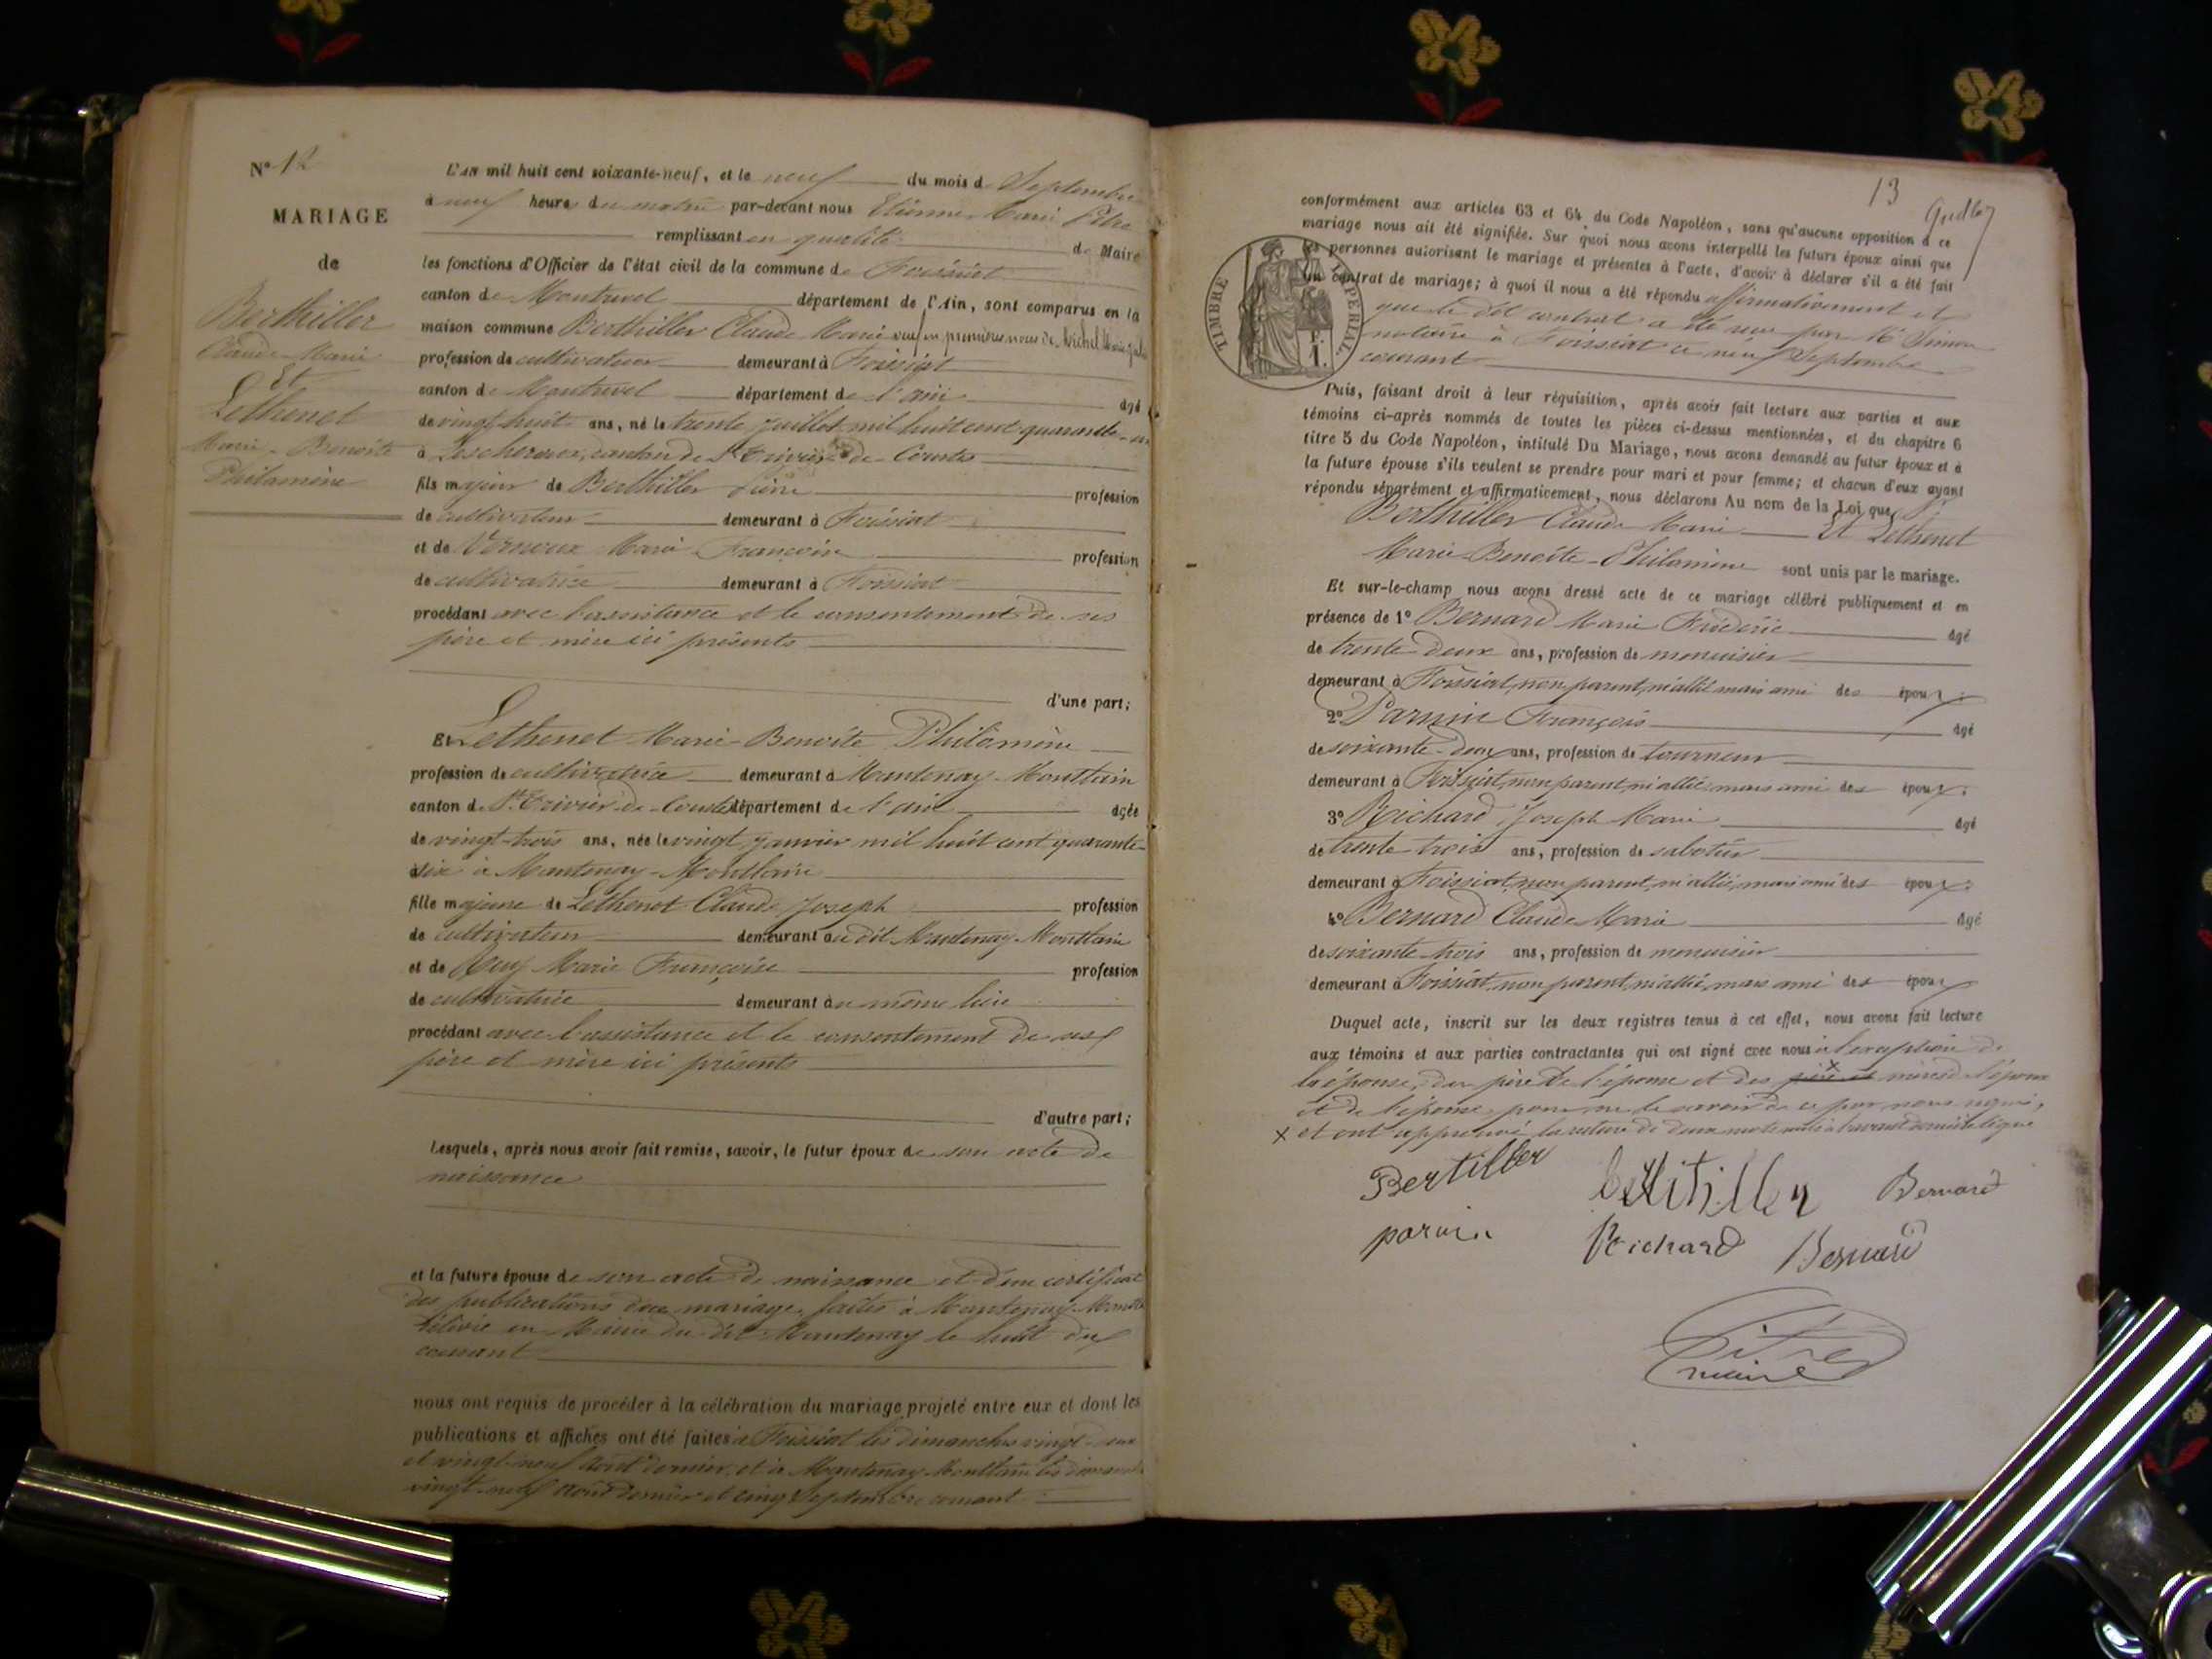 N° 12
MARIAGE
de
Berthiller
Claude-Marie
Et
Lethenet
Marie-Benoîte
Philomène
L'AN mil huit cent soixante-neuf, et le neuf du mois de Septembre
à neuf heures du matin par-devant nous Etienne Marie Pitre
remplissant en qualité de Maire
les fonctions d'Officier de l'état civil de la commune de Foissiat
canton de Montrevel département de l'Ain, sont comparus en la
maison commune Berthiller Claude Marie veuf en premières noces de Michel Marie
profession de cultivateur demeurant à Foissiat
canton de Montrevel département de l'ain âgé
de vingt-huit ans, né le trente Juillet mil huit cent quarante-un
à Lescheroux, canton de St Trivier-de-Courtes
fils majeur de Berthiller profession
de cultivateur demeurant à Foissiat
et de Vernoux Marie Françoise profession
de cultivatrice demeurant à Foissiat
procédant avec l'assistance et le consentement de ses
père et mère ici présents
d'une part;
Et Lethenet Marie-Benoîte Philomène
profession de cultivatrice demeurant à Mantenay-Montlain
canton de St Trivier-de-Courtes département de l'ain âgée
de vingt-trois ans, née le vingt Janvier mil huit cent quarante-
six à Mantenay-Montlain
fille majeure de Lethenet Claude Joseph profession
de cultivateur demeurant au dit Mantenay-Montlain
et de Marie Françoise profession
de cultivatrice demeurant au même lieu
procédant avec l'assistance et le consentement de ses
père et mère ici présents
d'autre part;
Lesquels, après nous avoir fait remise, savoir, le futur époux de son acte de
naissance
et la future épouse de son acte de naissance et d'un certificat
des publications de mariage, faites à Mantenay-Montlain
délivré en Mairie du dit Mantenay le huit du
courant
nous ont requis de procéder à la célébration du mariage projeté entre eux et dont les
publications et affiches ont été faites à Foissiat les dimanches vingt-deux
et vingt-neuf Août dernier, et à Mantenay-Montlain les dimanches
vingt-neuf Août dernier et cinq Septembre courant
13
conformément aux articles 63 et 64 du Code Napoléon, sans qu'aucune opposition à ce
mariage nous ait été signifiée. Sur quoi nous avons interpellé les futurs époux ainsi que
les personnes autorisant le mariage et présentes à l'acte, d'avoir à déclarer s'il a été fait
un contrat de mariage; à quoi il nous a été répondu affirmativement et
que le dit contrat a été reçu par Me Simon
notaire à Foissiat ce neuf Septembre
courant
TIMBRE IMPERIAL
1 F.
Puis, faisant droit à leur réquisition, après avoir fait lecture aux parties et aux
témoins ci-après nommés de toutes les pièces ci-dessus mentionnées, et du chapitre 6
titre 5 du Code Napoléon, intitulé Du Mariage, nous avons demandé au futur époux et à
la future épouse s'ils veulent se prendre pour mari et pour femme; et chacun d'eux ayant
répondu séparément et affirmativement, nous déclarons Au nom de la Loi que
Berthiller Claude Marie Et Lethenet
Marie-Benoîte-Philomène sont unis par le mariage.
Et sur-le-champ nous avons dressé acte de ce mariage célébré publiquement et en
présence de 1° Bernard Marie Frédéric âgé
de trente-deux ans, profession de menuisier
demeurant à Foissiat, non parent, ni allié mais ami des époux;
2° Parnin François âgé
de soixante-deux ans, profession de tourneur
demeurant à Foissiat, non parent, ni allié mais ami des époux;
3° Reichard Joseph Marie âgé
de trente trois ans, profession de sabotier
demeurant à Foissiat, non parent, ni allié, mais ami des époux;
4° Bernard Claude Marie âgé
de soixante-trois ans, profession de menuisier
demeurant à Foissiat, non parent, ni allié, mais ami des époux
Duquel acte, inscrit sur les deux registres tenus à cet effet, nous avons fait lecture
aux témoins et aux parties contractantes qui ont signé avec nous à l'exception de
l'épouse, du père de l'épouse et des père et mères de l'époux
et de l'épouse pour ne le savoir de ce par nous requis,
x et ont approuvé la rature de deux mots nuls à l'avant dernière ligne
Bertiller
Berthiller
Bernard
parnin
Reichard
Bernard
Pitre
maire